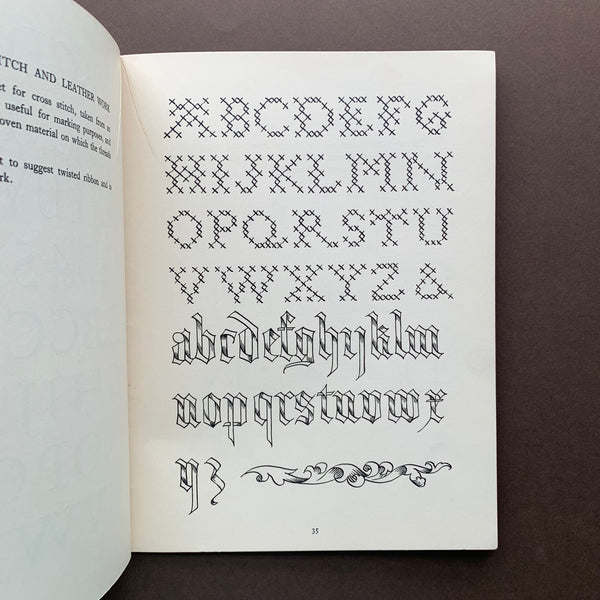 ITCH AND LEATHER WORK
et for cross stitch, taken from an
useful for marking purposes, and
oven material on which the threads
t to suggest twisted ribbon and is
rk.
ABCDEFG
HIJKLMN
OPQRSTU
VWXYZ&
abcdefghijklm
nopqrstuvwx
yz
35